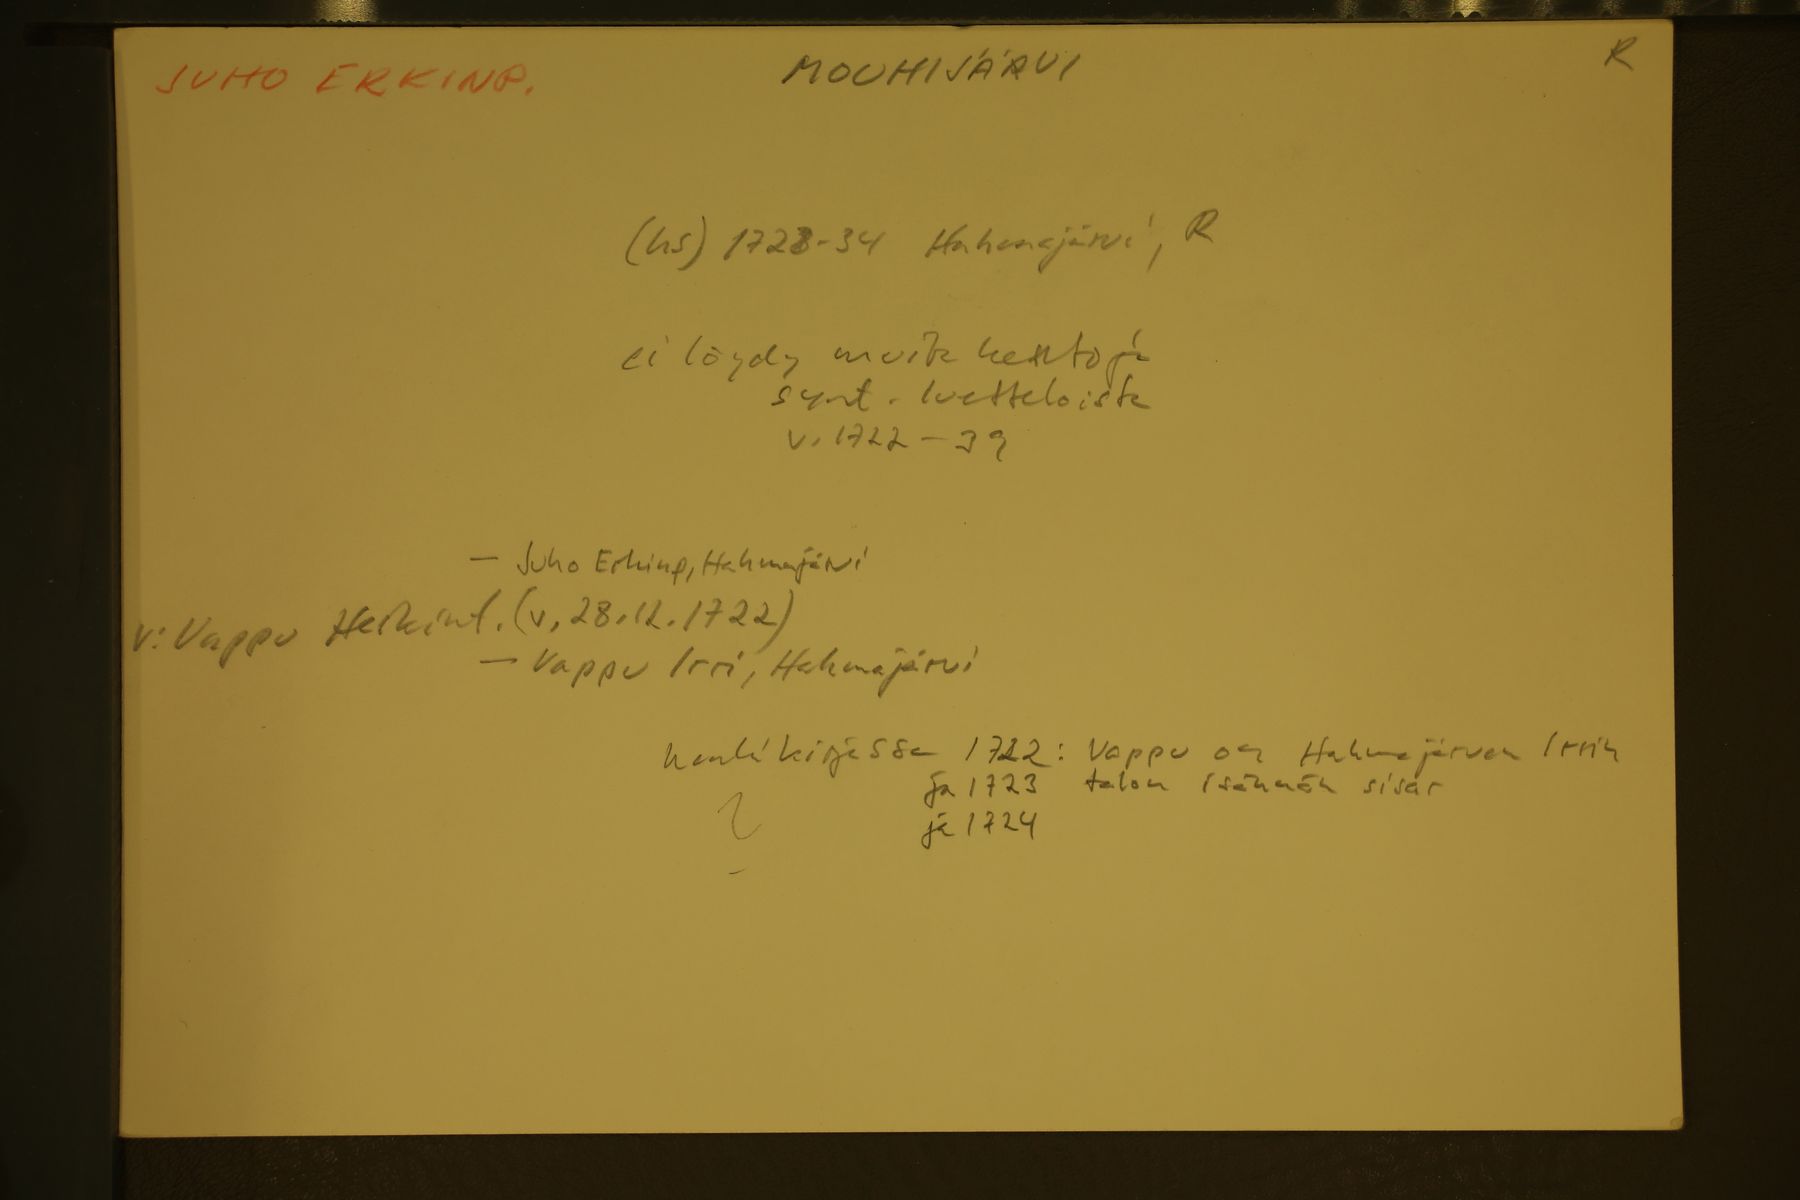 JUHO ERKINP. MOUHIJÄRVI R
(hs) 1728-34 Hahmajärvi, R
ei löydy muita
synt. luetteloista
v. 1722 - 39
- Juho Erkinp, Hahmajärvi
v: Vappu Heikint. (v, 28.12.1722)
- Vappu Irri, Hahmajärvi
henkikirjassa 1722: Vappu on Hahmajärven Irrin
ja 1723 talon isännän sisar
ja 1724
?